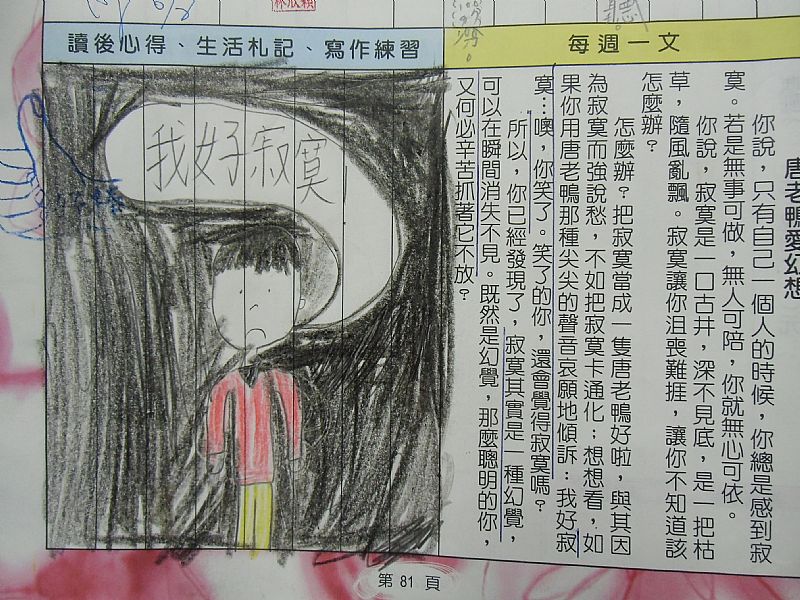 讀後心得、生活札記、寫作練習
每週一文
唐老鴨愛幻想
你說，只有自己一個人的時候，你總是感到寂
寞。若是無事可做，無人可陪，你就無心可依。
你說，寂寞是一口古井，深不見底，是一把枯
草，隨風亂飄。寂寞讓你沮喪難捱，讓你不知道該
怎麼辦？
怎麼辦？把寂寞當成一隻唐老鴨好啦，與其因
為寂寞而強說愁，不如把寂寞卡通化；想想看，如
果你用唐老鴨那種尖尖的聲音哀願地傾訴：我好寂
寞…噢，你笑了。笑了的你，還會覺得寂寞嗎？
所以，你已經發現了，寂寞其實是一種幻覺，
可以在瞬間消失不見。既然是幻覺，那麼聰明的你，
又何必辛苦抓著它不放？
我好寂寞
第 81 頁